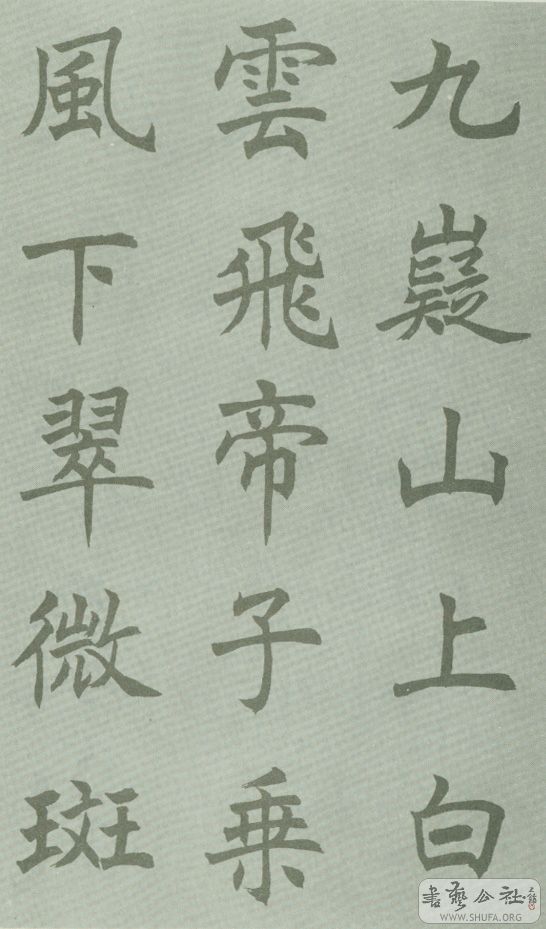 九嶷山上白
雲飛帝子乗
風下翠微斑
書藝公社
WWW.SHUFA.ORG